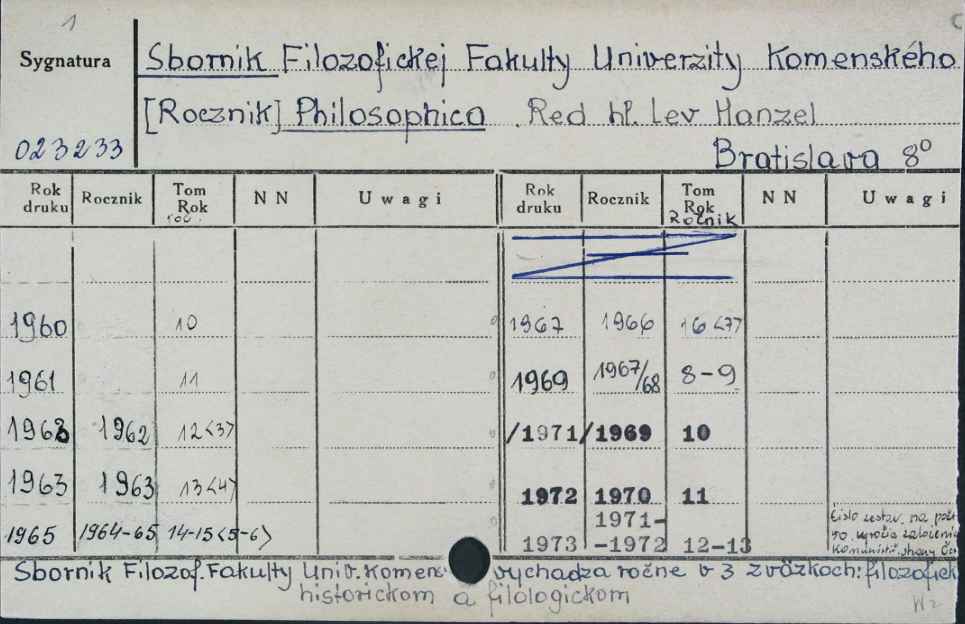 1
Sygnatura
Sbornik Filozofickej Fakulty Univerzity Komenského
[Rocznik] Philosophica. Red hł. Lev Hanzel
023233
Bratislava 8°
Rok druku Rocznik Tom Rok roč. NN Uwagi Rok druku Rocznik Tom Rok Ročnik NN Uwagi
1960 10 1967 1966 16<7>
1961 11 1969 1967/68 8-9
1963 1962 12<3> /1971/ 1969 10
1963 1963 13<4> 1972 1970 11
1965 1964-65 14-15<5-6> 1973 1971--1972 12-13
čislo zestav. na
50. založenia
Komunist. strany
Sbornik Filozof. Fakulty Univ. Komens vychadza ročne v 3 zväzkoch: filozofick
historickom a filologickom